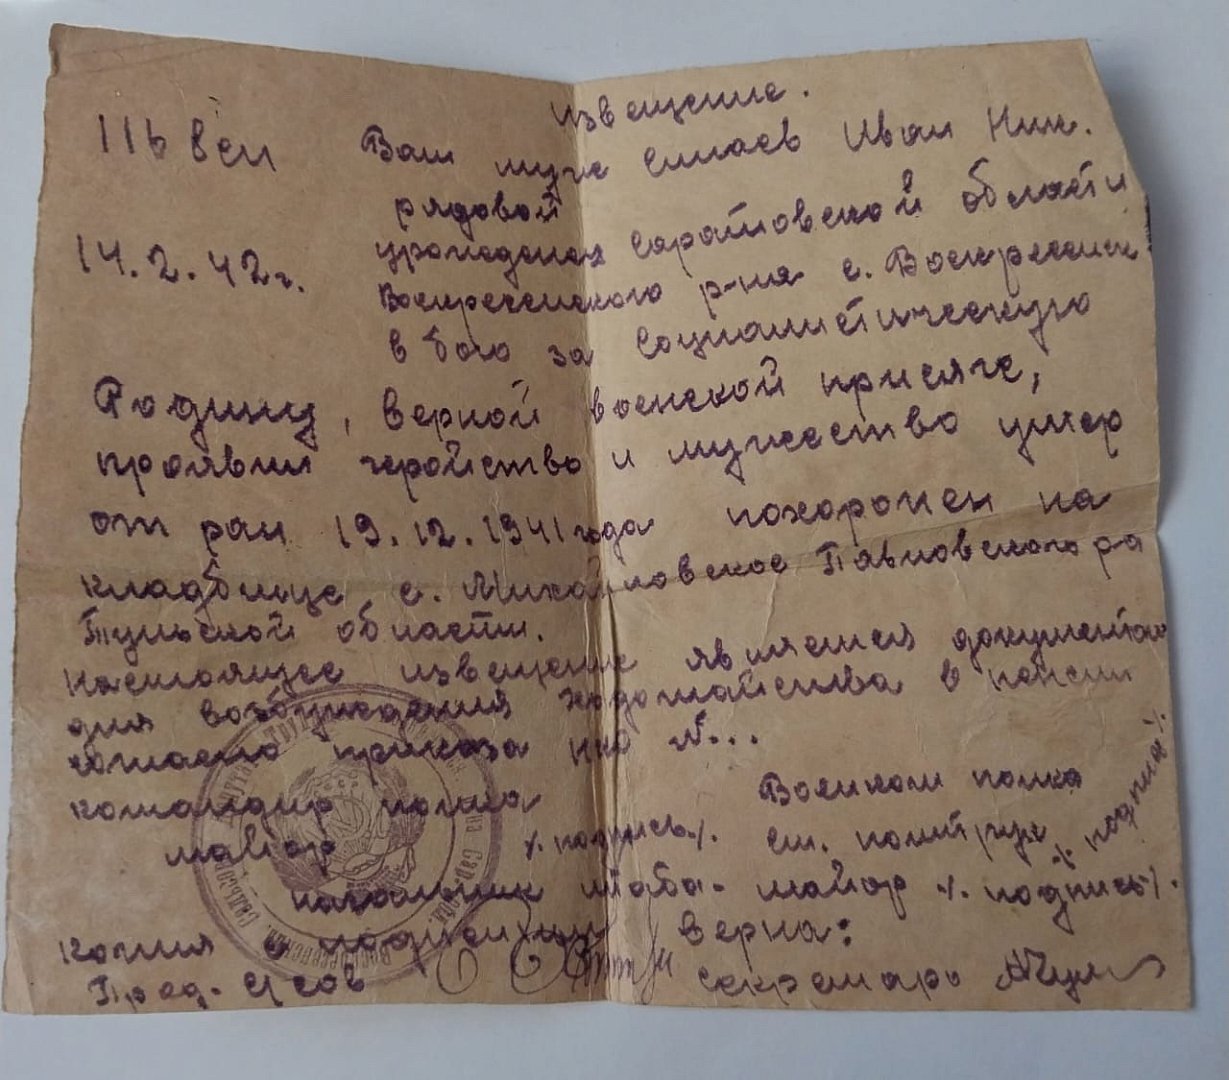 извещение.
116 вСп Ваш муж Симаев Иван Ник.
рядовой
14.2.42г. уроженец Саратовской области
Воскресенского р-на с. Воскресенск
в бою за социалистическую
Родину, верной военской присяге,
проявил геройство и мужество умер
от ран 19.12.1941 года похоронен на
кладбище с. Михайловское Павловского ра
Тульской области.
настоящее извещение является документом
для возбуждения ходотайства в пенсии
согласно приказа нко №...
командир полка Военком полка
майор ./. подпись./. ст. политрук ./. подпись ./.
начальник штаба - майор ./. подпись ./.
копия с подлинным верна:
Пред. с/сов секретарь